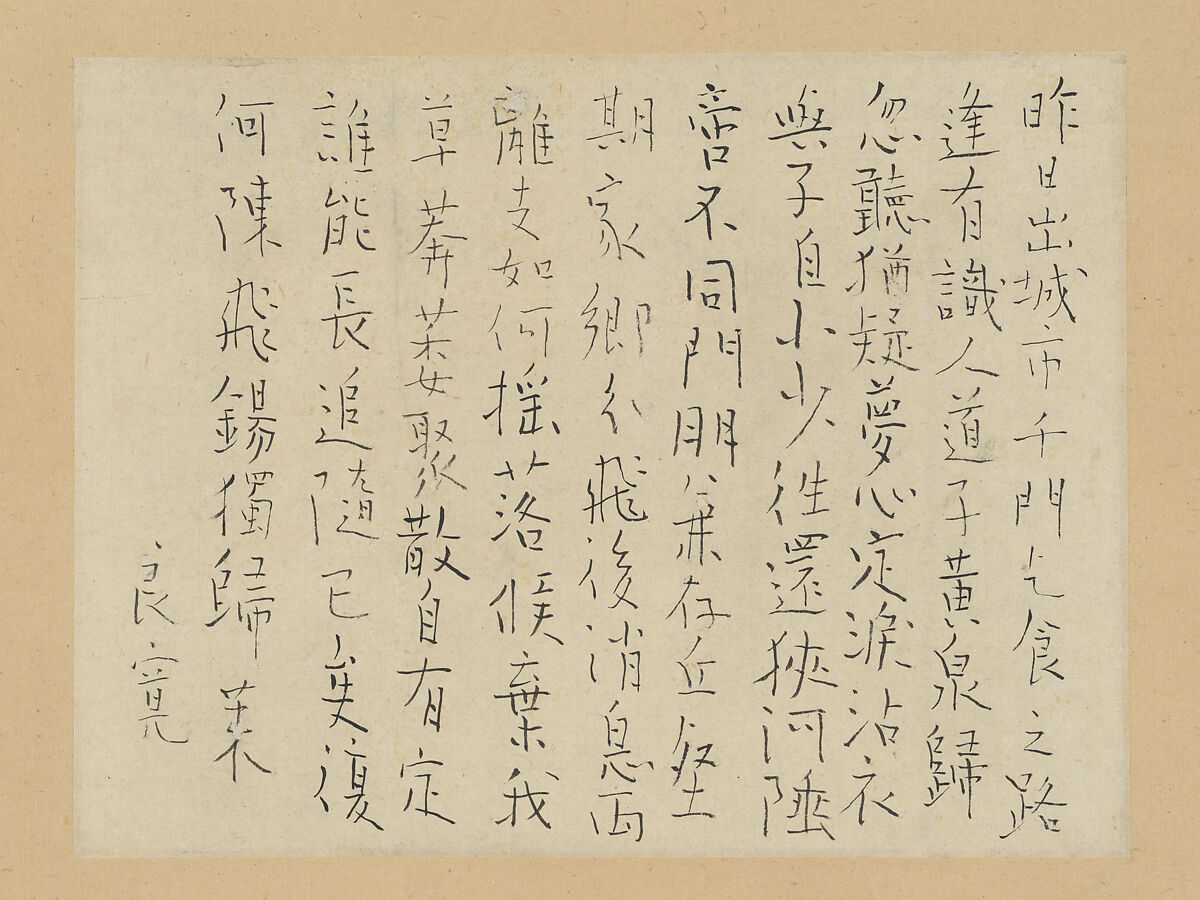 昨日出城市千門乞食之路
逢有識人道子黄泉歸
忽聽猶疑夢心定淚沾衣
與子自小少往還狹河陲
啻不同門朋兼存丘壑
期家鄉分飛後消息両
離支如何摇落候棄我
草莽萋聚散自有定
誰能長追隨已矣復
何陳飛錫獨歸来
良寛